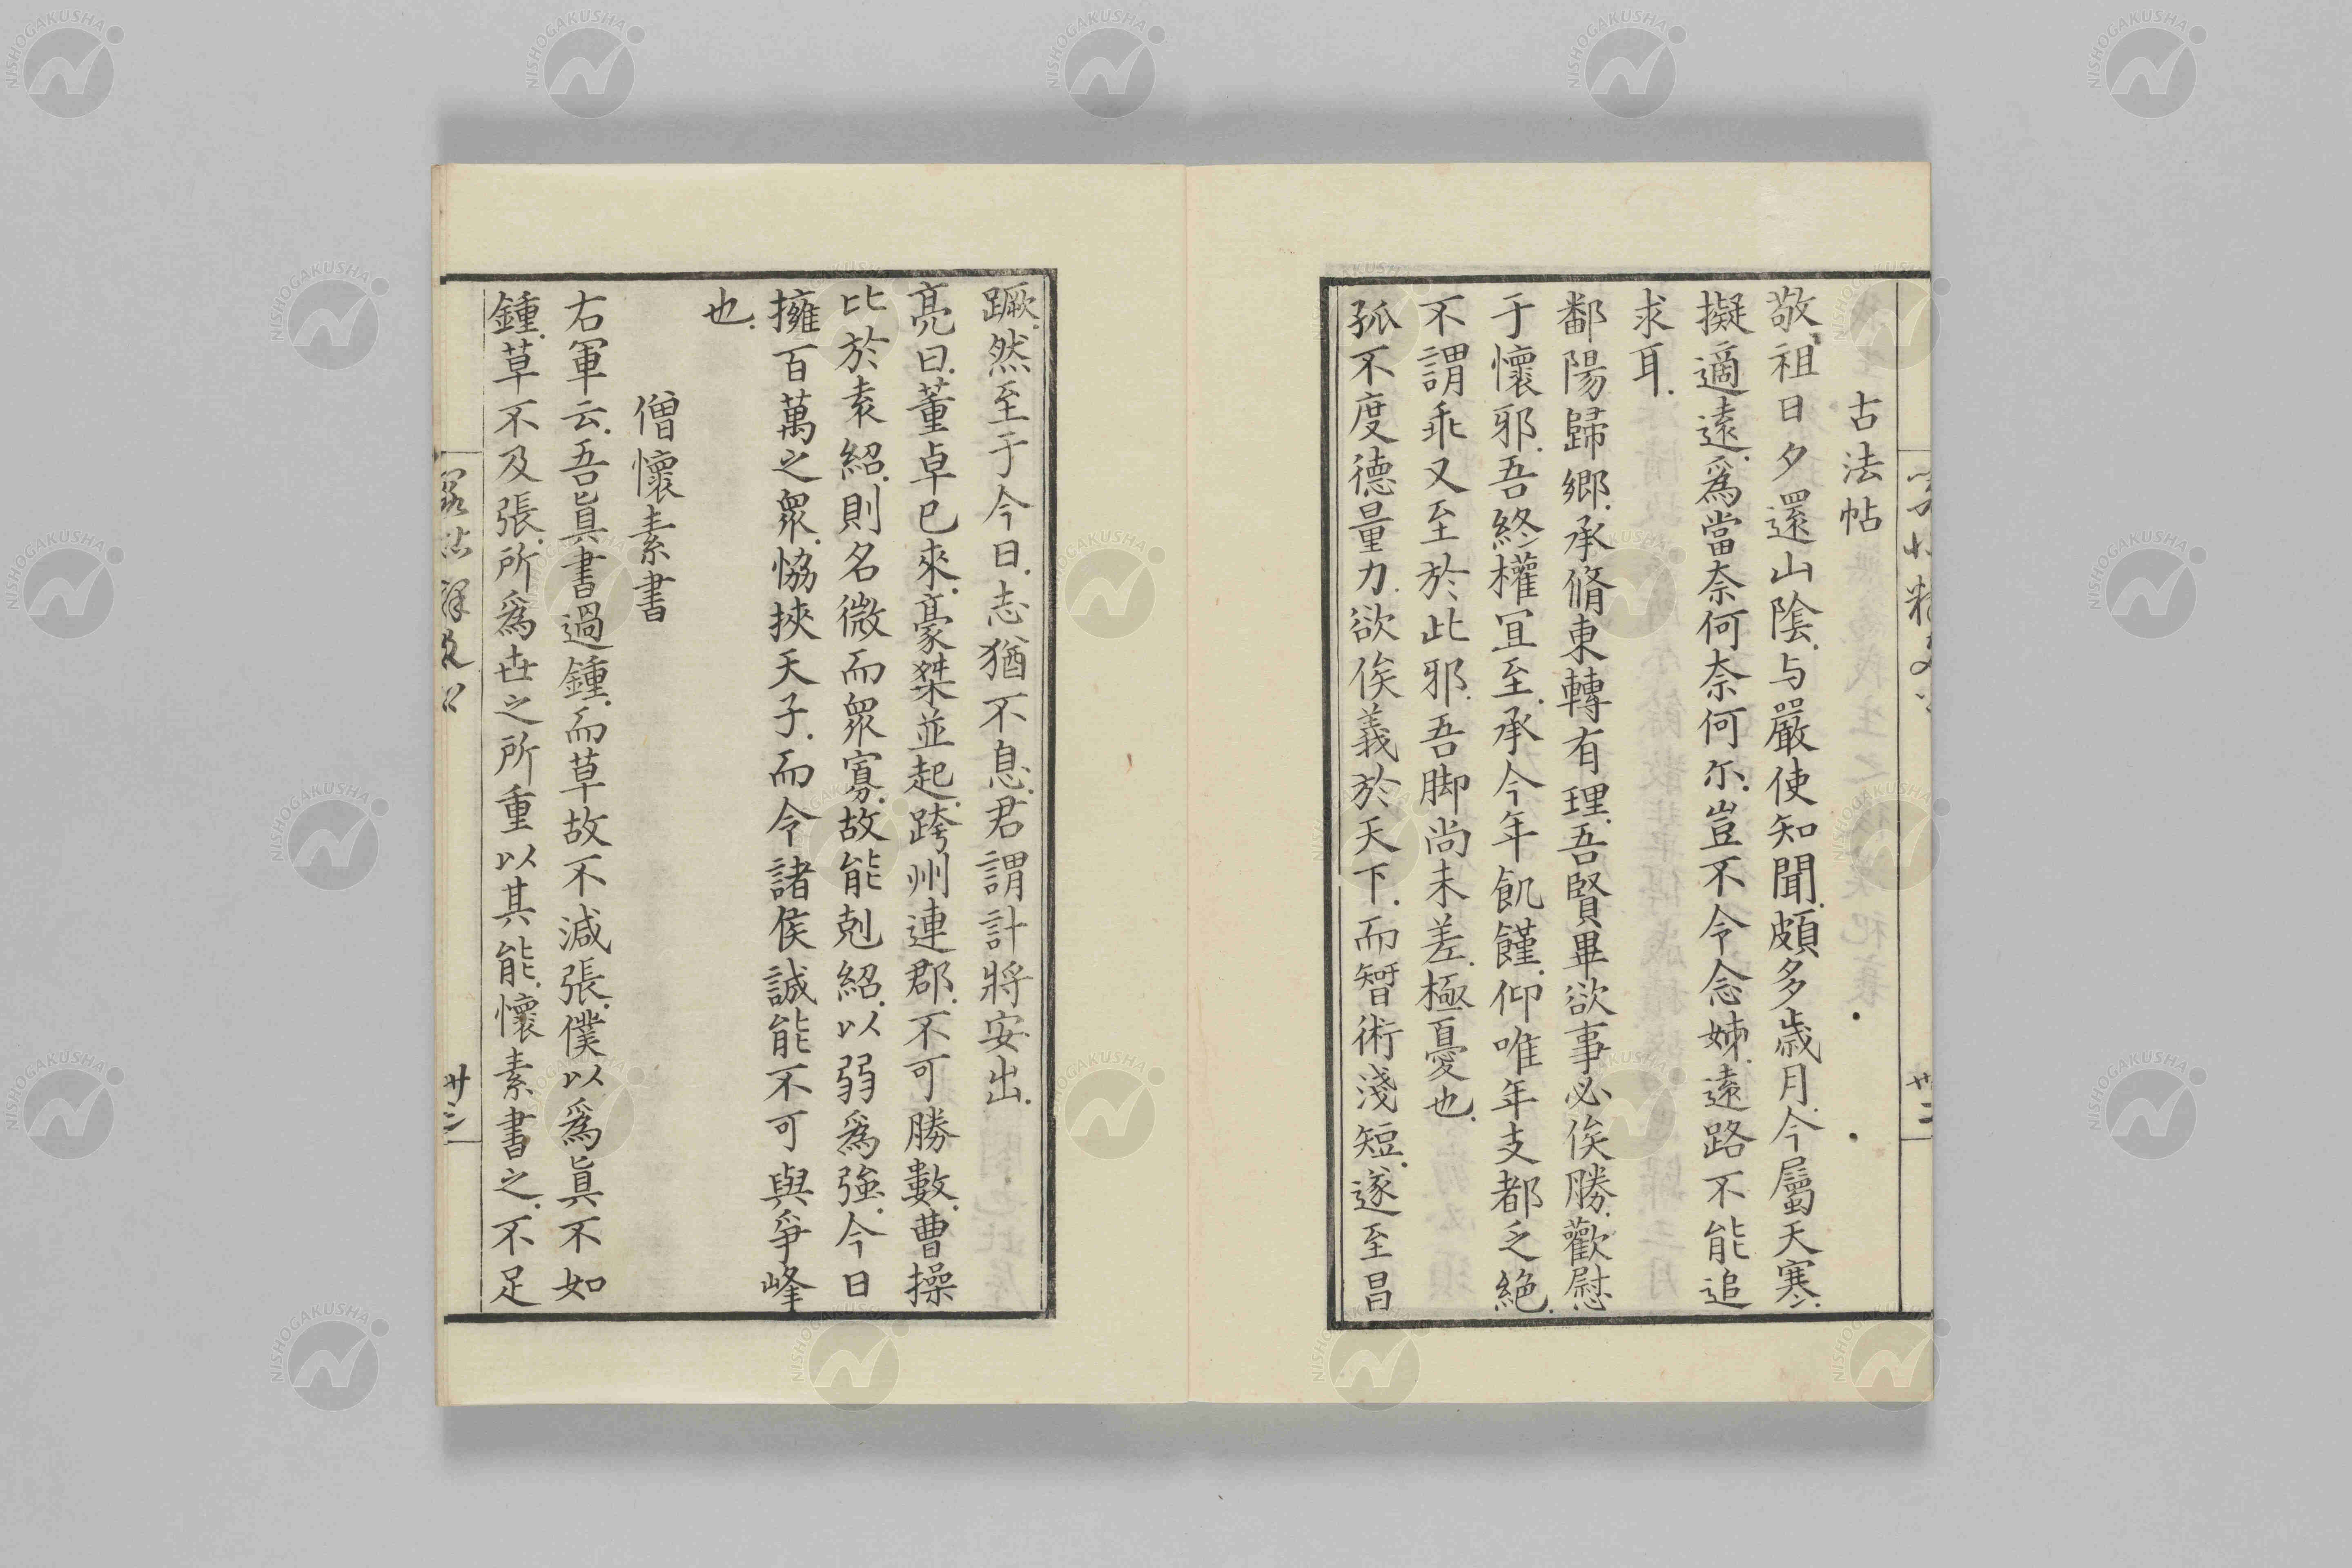 古法帖
敬祖日夕還山陰.与嚴使知聞.頗多歳月.今屬天寒.
擬適遠.爲當奈何奈何尓.豈不令念姊.遠路不能追
求耳.
鄱陽歸鄉.承脩東轉有理.吾賢畢欲事必俟勝.歡慰
于懷邪.吾終權宜至.承今年飢饉.仰唯年支都乏絶.
不謂乖又至於此邪.吾脚尚未差.極憂也.
孤不度德量力.欲俟義於天下.而智術淺短.遂至昌
蹶.然至于今日.志猶不息.君謂計將安出.
亮曰.董卓已來.豪桀並起.跨州連郡.不可勝數.曹操
比於袁紹.則名微而衆寡.故能剋紹.以弱爲強.今日
擁百萬之衆.恊挾天子.而令諸侯誠能不可與爭峰
也.
僧懷素書
右軍云.吾眞書過鍾.而草故不減張.僕以爲眞不如
鍾.草不及張.所爲世之所重以其能.懷素書之.不足
廿二
廿三
NISHOGAKUSHA